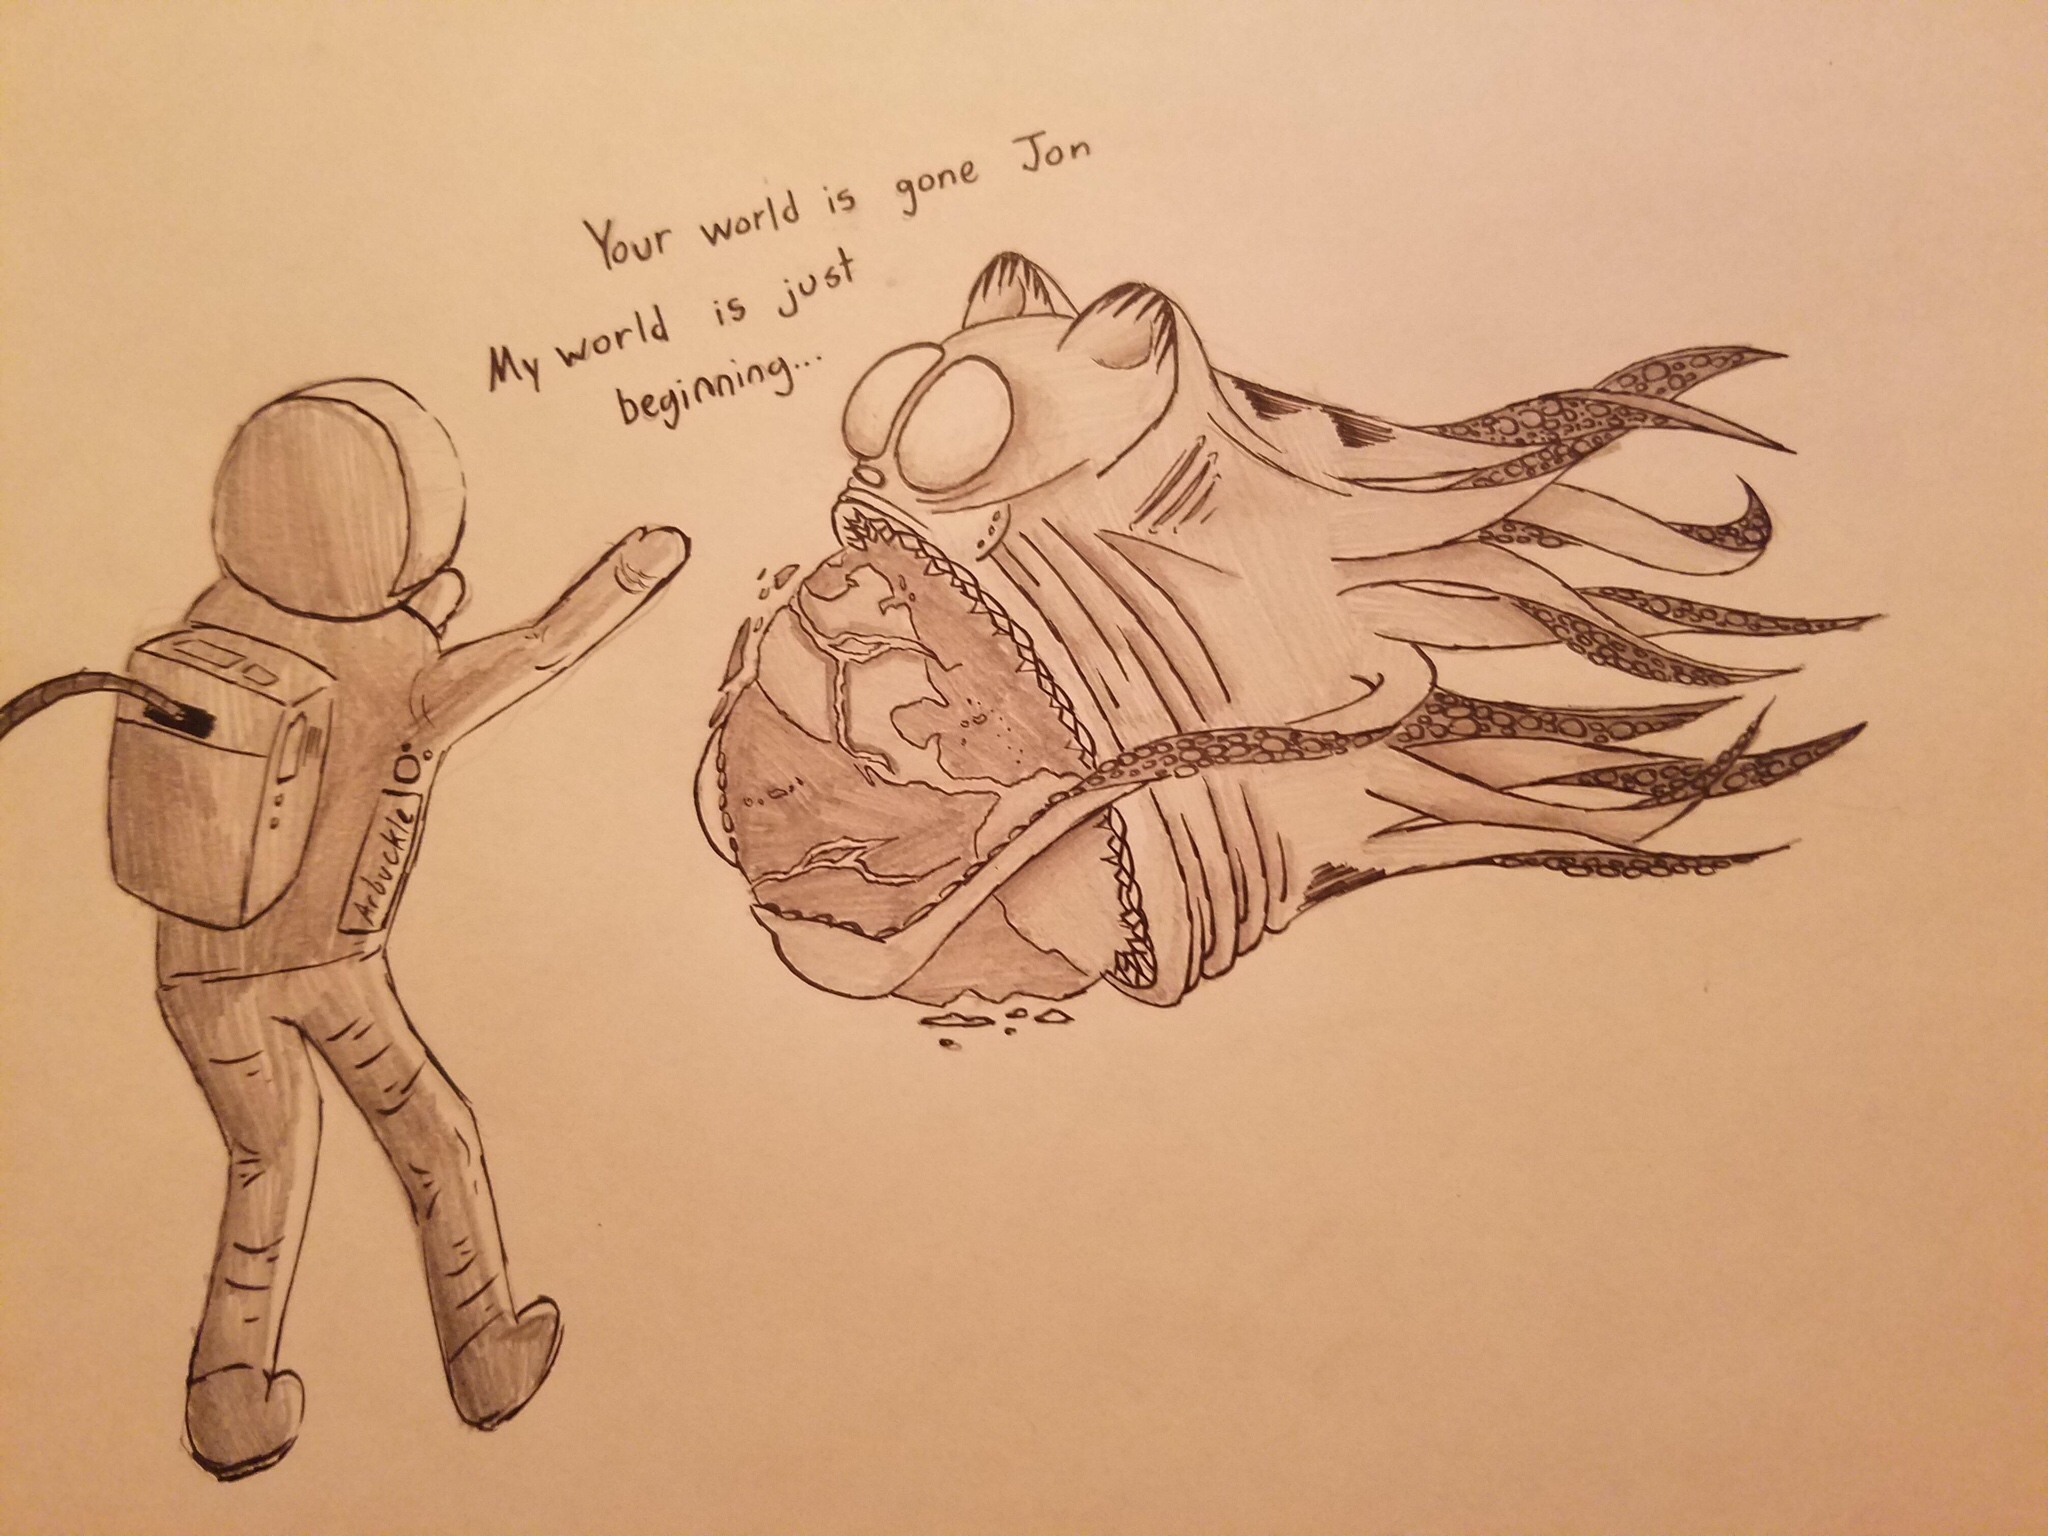 Your world is gone Jon
My world is just
beginning...
Arbuckle